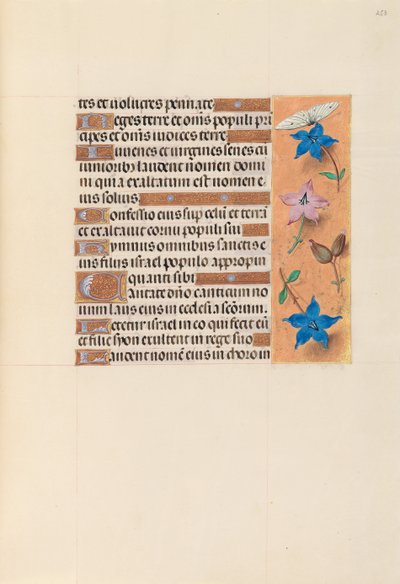 253
tes et uolucres pennate
Reges terre et om̃s populi pri
cipes et om̃s iudices terre
Iuuenes et uirgines senes cũ
iunioribꝫ laudent nomen domi
ni quia exaltatum est nomen e
ius solius
Confessio eius sup celũ et terrã
et exaltauit cornu populi sui
Hymnus omnibus sanctis e
ius filiis israel populo appropin
quanti sibi
Cantate dño canticum no
uum laus eius in ecclesia scõrum.
Letetur israel in eo qui fecit eũ
et filie syon exultent in rege suo
Laudent nomẽ eius in choro in